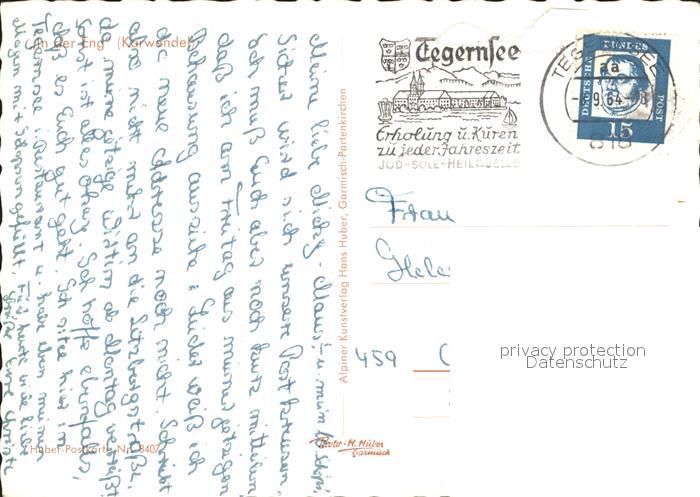 "In der Eng" (Karwendel)
Meine liebe Mickey-Maus! - u. mein lb.
Sicher wird sich unsere Post kreuzen.
Ich muß Euch aber noch kurz mitteilen
daß ich am Freitag aus meiner jetzigen
Behausung ausziehe; Leider weiß ich
die neue Adresse noch nicht. Schreibt
also nicht mehr an die Sitzbergstraße,
da meine jetzige Wirtin ab Montag verreist!
Sonst ist alles Okay. Ich hoffe ebenfalls,
daß es Euch gut geht. Ich sitze hier im
Tegernsee i. Restaurant u. habe eben meinen
Magen mit gefüllt. Für heute viele liebe
Grüße
Huber-Postkarte Nr. 8407
Alpiner Kunstverlag Hans Huber, Garmisch-Partenkirchen
Photo-H. Huber
Garmisch
Tegernsee
Erholung u. Kuren
zu jeder Jahreszeit
JOD-SOLE-HEILQUELLE
TEGERNSEE
9.64
818
DEUTSCHE
BUNDES
POST
15
Frau
Hele
459
privacy protection
Datenschutz